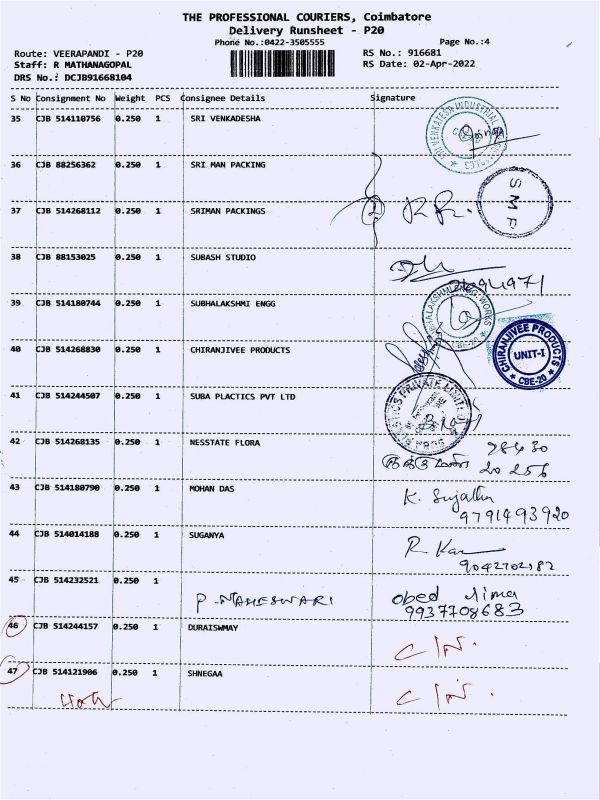 THE PROFESSIONAL COURIERS, Coimbatore
Delivery Runsheet - P20
Phone No.:0422-3505555 Page No.:4
Route: VEERAPANDI - P20 RS No.: 916681
Staff: R MATHANAGOPAL RS Date: 02-Apr-2022
DRS No.: DCJB91668104
S No Consignment No Weight PCS Consignee Details Signature
35 CJB 514110756 0.250 1 SRI VENKADESHA
36 CJB 88256362 0.250 1 SRI MAN PACKING
SMP
37 CJB 514268112 0.250 1 SRIMAN PACKINGS
38 CJB 88153025 0.250 1 SUBASH STUDIO
39 CJB 514180744 0.250 1 SUBHALAKSHMI ENGG
40 CJB 514268830 0.250 1 CHIRANJIVEE PRODUCTS
CHIRANJIVEE PRODUCTS
UNIT-I
CBE-20
41 CJB 514244507 0.250 1 SUBA PLACTICS PVT LTD
42 CJB 514268135 0.250 1 NESSTATE FLORA
98430
20256
43 CJB 514180790 0.250 1 MOHAN DAS K. Sujatha
9791493920
44 CJB 514014188 0.250 1 SUGANYA
9042702182
45 CJB 514232521 0.250 1
P. MAHESWARI
9937708683
46 CJB 514244157 0.250 1 DURAISWMAY
47 CJB 514121906 0.250 1 SHNEGAA